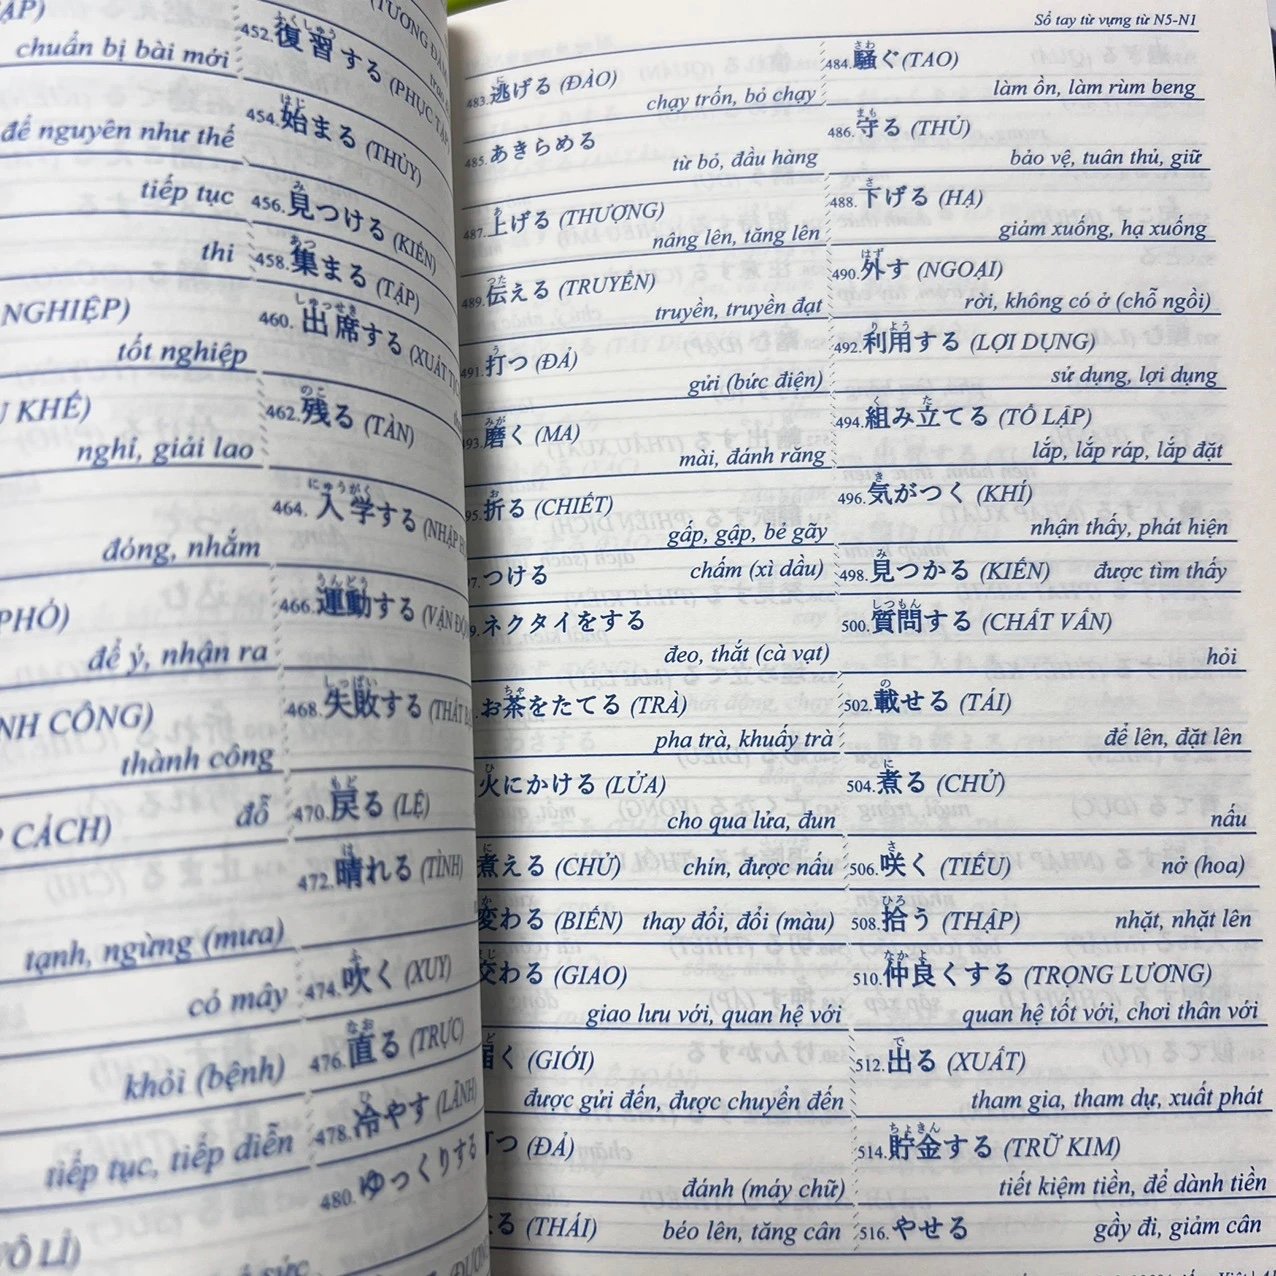 ẬP)
chuẩn bị bài mới
để nguyên như thế
tiếp tục
thi
NGHIỆP)
tốt nghiệp
KHẾ)
nghỉ, giải lao
đóng, nhắm
PHÓ)
để ý, nhận ra
NH CÔNG)
thành công
CÁCH)
đỗ
tạnh, ngừng (mưa)
có mây
khỏi (bệnh)
tiếp tục, tiếp diễn
(TƯƠNG
ふくしゅう
452.復習する (PHỤC TẬP
はじ
454.始まる (THỦY)
み
456.見つける (KIẾN)
あつ
458.集まる (TẬP)
しゅっせき
460.出席する (XUẤT
のこ
462.残る (TÀN)
にゅうがく
464.入学する (NHẬP
うんどう
466.運動する (VẬN
しっぱい
468.失敗する (THẤT
もど
470.戻る (LỆ)
は
472.晴れる (TÌNH)
ふ
474.吹く (XUY)
なお
476.直る (TRỰC)
ひ
478.冷やす (LÃNH)
480.ゆっくりする
Sổ tay từ vựng từ N5-N1
に
483.逃げる (ĐÀO)
chạy trốn, bỏ chạy
485.あきらめる
từ bỏ, đầu hàng
あ
487.上げる (THƯỢNG)
nâng lên, tăng lên
つた
489.伝える (TRUYỀN)
truyền, truyền đạt
う
491.打つ (ĐẢ)
gửi (bức điện)
みが
93.磨く (MA)
mài, đánh răng
お
95.折る (CHIẾT)
gấp, gập, bẻ gãy
7.つける
chấm (xì dầu)
9.ネクタイをする
đeo, thắt (cà vạt)
ちゃ
お茶をたてる (TRÀ)
pha trà, khuấy trà
ひ
火にかける (LỬA)
cho qua lửa, đun
に
煮える (CHỬ)
chín, được nấu
か
変わる (BIẾN)
thay đổi, đổi (màu)
じ
交わる (GIAO)
giao lưu với, quan hệ với
ど
届く (GIỚI)
được gửi đến, được chuyển đến
打つ (ĐẢ)
đánh (máy chữ)
る (THÁI)
béo lên, tăng cân
さわ
484.騒ぐ(TAO)
làm ồn, làm rùm beng
まも
486.守る (THỦ)
bảo vệ, tuân thủ, giữ
さ
488.下げる (HẠ)
giảm xuống, hạ xuống
はず
490.外す (NGOẠI)
rời, không có ở (chỗ ngồi)
り よう
492.利用する (LỢI DỤNG)
sử dụng, lợi dụng
く た
494.組み立てる (TỔ LẬP)
lắp, lắp ráp, lắp đặt
き
496.気がつく (KHÍ)
nhận thấy, phát hiện
み
498.見つかる (KIẾN)
được tìm thấy
しつもん
500.質問する (CHẤT VẤN)
hỏi
の
502.載せる (TÁI)
để lên, đặt lên
に
504.煮る (CHỬ)
nấu
さ
506.咲く (TIẾU)
nở (hoa)
ひろ
508.拾う (THẬP)
nhặt, nhặt lên
なか よ
510.仲良くする (TRỌNG LƯƠNG)
quan hệ tốt với, chơi thân với
で
512.出る (XUẤT)
tham gia, tham dự, xuất phát
ちょきん
514.貯金する (TRỮ KIM)
tiết kiệm tiền, để dành tiền
516.やせる
gầy đi, giảm cân